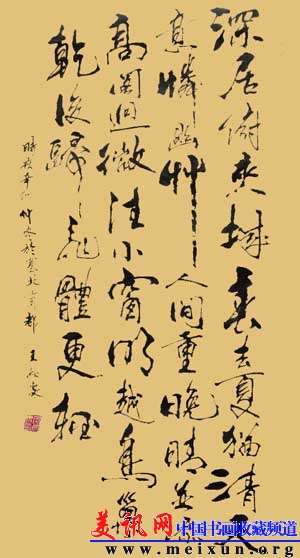 深居俯夾城春去夏猶清天
意憐幽艸人间重晚晴並添
高阁迥微注小窗明越鳥巢
乾後歸飛體更輕
仲冬於京都 王
美讯网 中国书画收藏频道
www.meixun.org